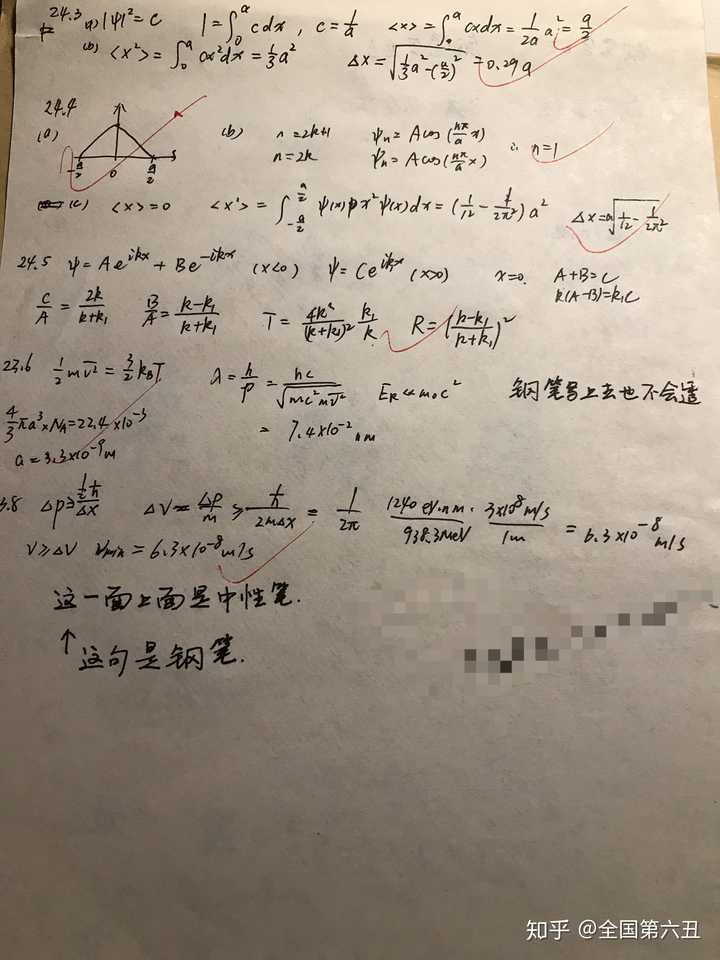 24.3 (a) |ψ|²=c 1=∫₀ᵃ cdx, c=1/a <x>=∫₀ᵃ cxdx=1/2a a²=a/2
(b) <x²>=∫₀ᵃ cx²dx=1/3a² Δx=√(1/3a²-(a/2)²)=0.29a
24.4
(a) (b) n=2k+1 ψn=Acos(nπ/a x) ∴ n=1
n=2k ψn=Acos(nπ/a x)
-a/2 0 a/2
(c) <x>=0 <x²>=∫ ψ(x)x²ψ(x)dx=(1/12-1/2π²)a² Δx=a√(1/12-1/2π²)
24.5 ψ=Ae^{ikx}+Be^{-ikx} (x<0) ψ=Ce^{ik₁x} (x>0) x=0. A+B=C
k(A-B)=k₁C
C/A=2k/(k+k₁) B/A=(k-k₁)/(k+k₁) T=4k²/(k+k₁)² k₁/k R=((k-k₁)/(k+k₁))²
23.6 1/2mv̄²=3/2k_BT λ=h/p=hc/√(mc²mv̄²) E_k≪m₀c² 钢笔写上去也不会透
4/3πa³×N_A=22.4×10⁻³ =7.4×10⁻²nm
a=3.3×10⁻⁹m
3.8 Δp≥½ħ/Δx Δv=Δp/m≥ħ/2mΔx=1/2π 1240eV·nm/938.3MeV·3×10⁸m/s/1m=6.3×10⁻⁸m/s
v≥Δv vmin=6.3×10⁻⁸m/s
这一面上面是中性笔.
↑这句是钢笔.
知乎 @全国第六丑